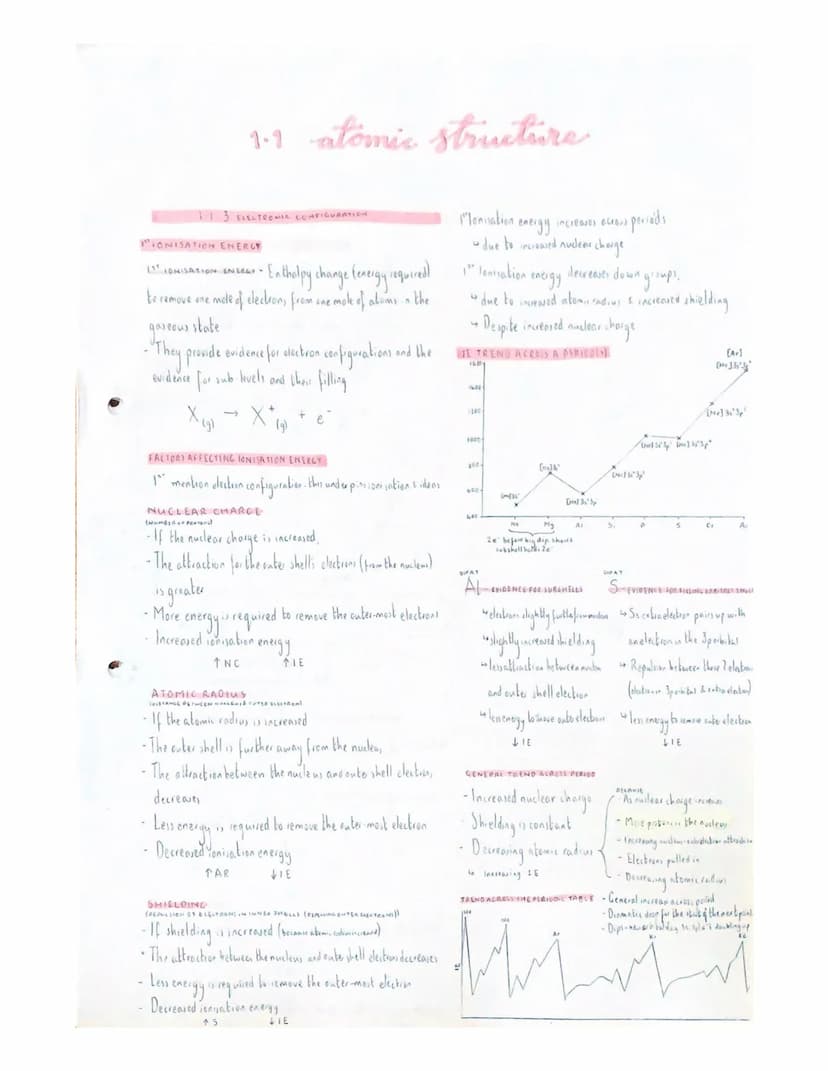 1.1 atomic structure
1.1.3 ELECTRONIC CONFIGURATION
1st IONISATION ENERGY
1st IONISATION ENERGY - Enthalpy change (energy required)
to remove one mole of electrons from one mole of atoms in the
gaseous state
- They provide evidence for electron configurations and the
evidence for sub levels and their filling
X(g) → X+(g) + e-
FACTORS AFFECTING IONISATION ENERGY
1st mention electron configuration - this underpins
NUCLEAR CHARGE
(NUMBER OF PROTONS)
- If the nuclear charge is increased,
- The attraction for the outer shells electrons (from the nucleus)
is greater
- More energy is required to remove the outer-most electrons
- Increased ionisation energy
↑NC ↑IE
ATOMIC RADIUS
(DISTANCE BETWEEN NUCLEUS & OUTER ELECTRON)
- If the atomic radius is increased
- The outer shell is further away from the nucleus
- The attraction between the nucleus and outer shell electrons
decreases
- Less energy is required to remove the outer-most electron
- Decreased ionisation energy
↑AR ↓IE
SHIELDING
(REPULSION OF ELECTRONS IN INNER SHELLS
- If shielding is increased
- The attraction between the nucleus and outer shell electrons decreases
- Less energy is required to remove the outer-most electron
- Decreased ionisation energy
↑S ↓IE
1st Ionisation energy increases across periods
↳ due to increased nuclear charge
1st Ionisation energy decreases down groups.
↳ due to increased atomic radius & increased shielding
↳ Despite increased nuclear charge
IE TREND ACROSS A PERIOD
[Ar]
[Ne]3s²3p⁵
[Ne]3s²3p³ [Ne]3s²3p⁴
[Ne]3s²3p²
[Ne]3s²
[Ne]3s¹
[Ne]3s²3p
1200
1000
800
600
400
Na Mg Al Si P S Cl Ar
2e- before big dip should
subshell holds 2e-
Al - EVIDENCE FOR SUBSHELLS
↳ electron slightly further from nucleus
↳ slightly increased shielding
↳ less attraction between nucleus
and outer shell electron
↳ less energy to remove outer electron
↓IE
S - EVIDENCE FOR
↳ S's extra electron pairs up with
an electron in the 3p orbital
↳ Repulsion between these 2 electrons
(electron in 3p orbital & extra electron)
↳ less energy to remove outer electron
↓IE
GENERAL TREND ACROSS PERIOD
- Increased nuclear charge
- Shielding is constant
- Decreasing atomic radius
↳ Increasing IE
BECAUSE
- As nuclear charge increases
- More protons in the nucleus
- Increasing nucleus-outer electron attraction
- Electrons pulled in
- Decreasing atomic radius
TREND ACROSS THE PERIODIC TABLE
- General increase across period
- Dramatic drop for the start of the next period
IE
He
Ne
Ar
Kr
Xe